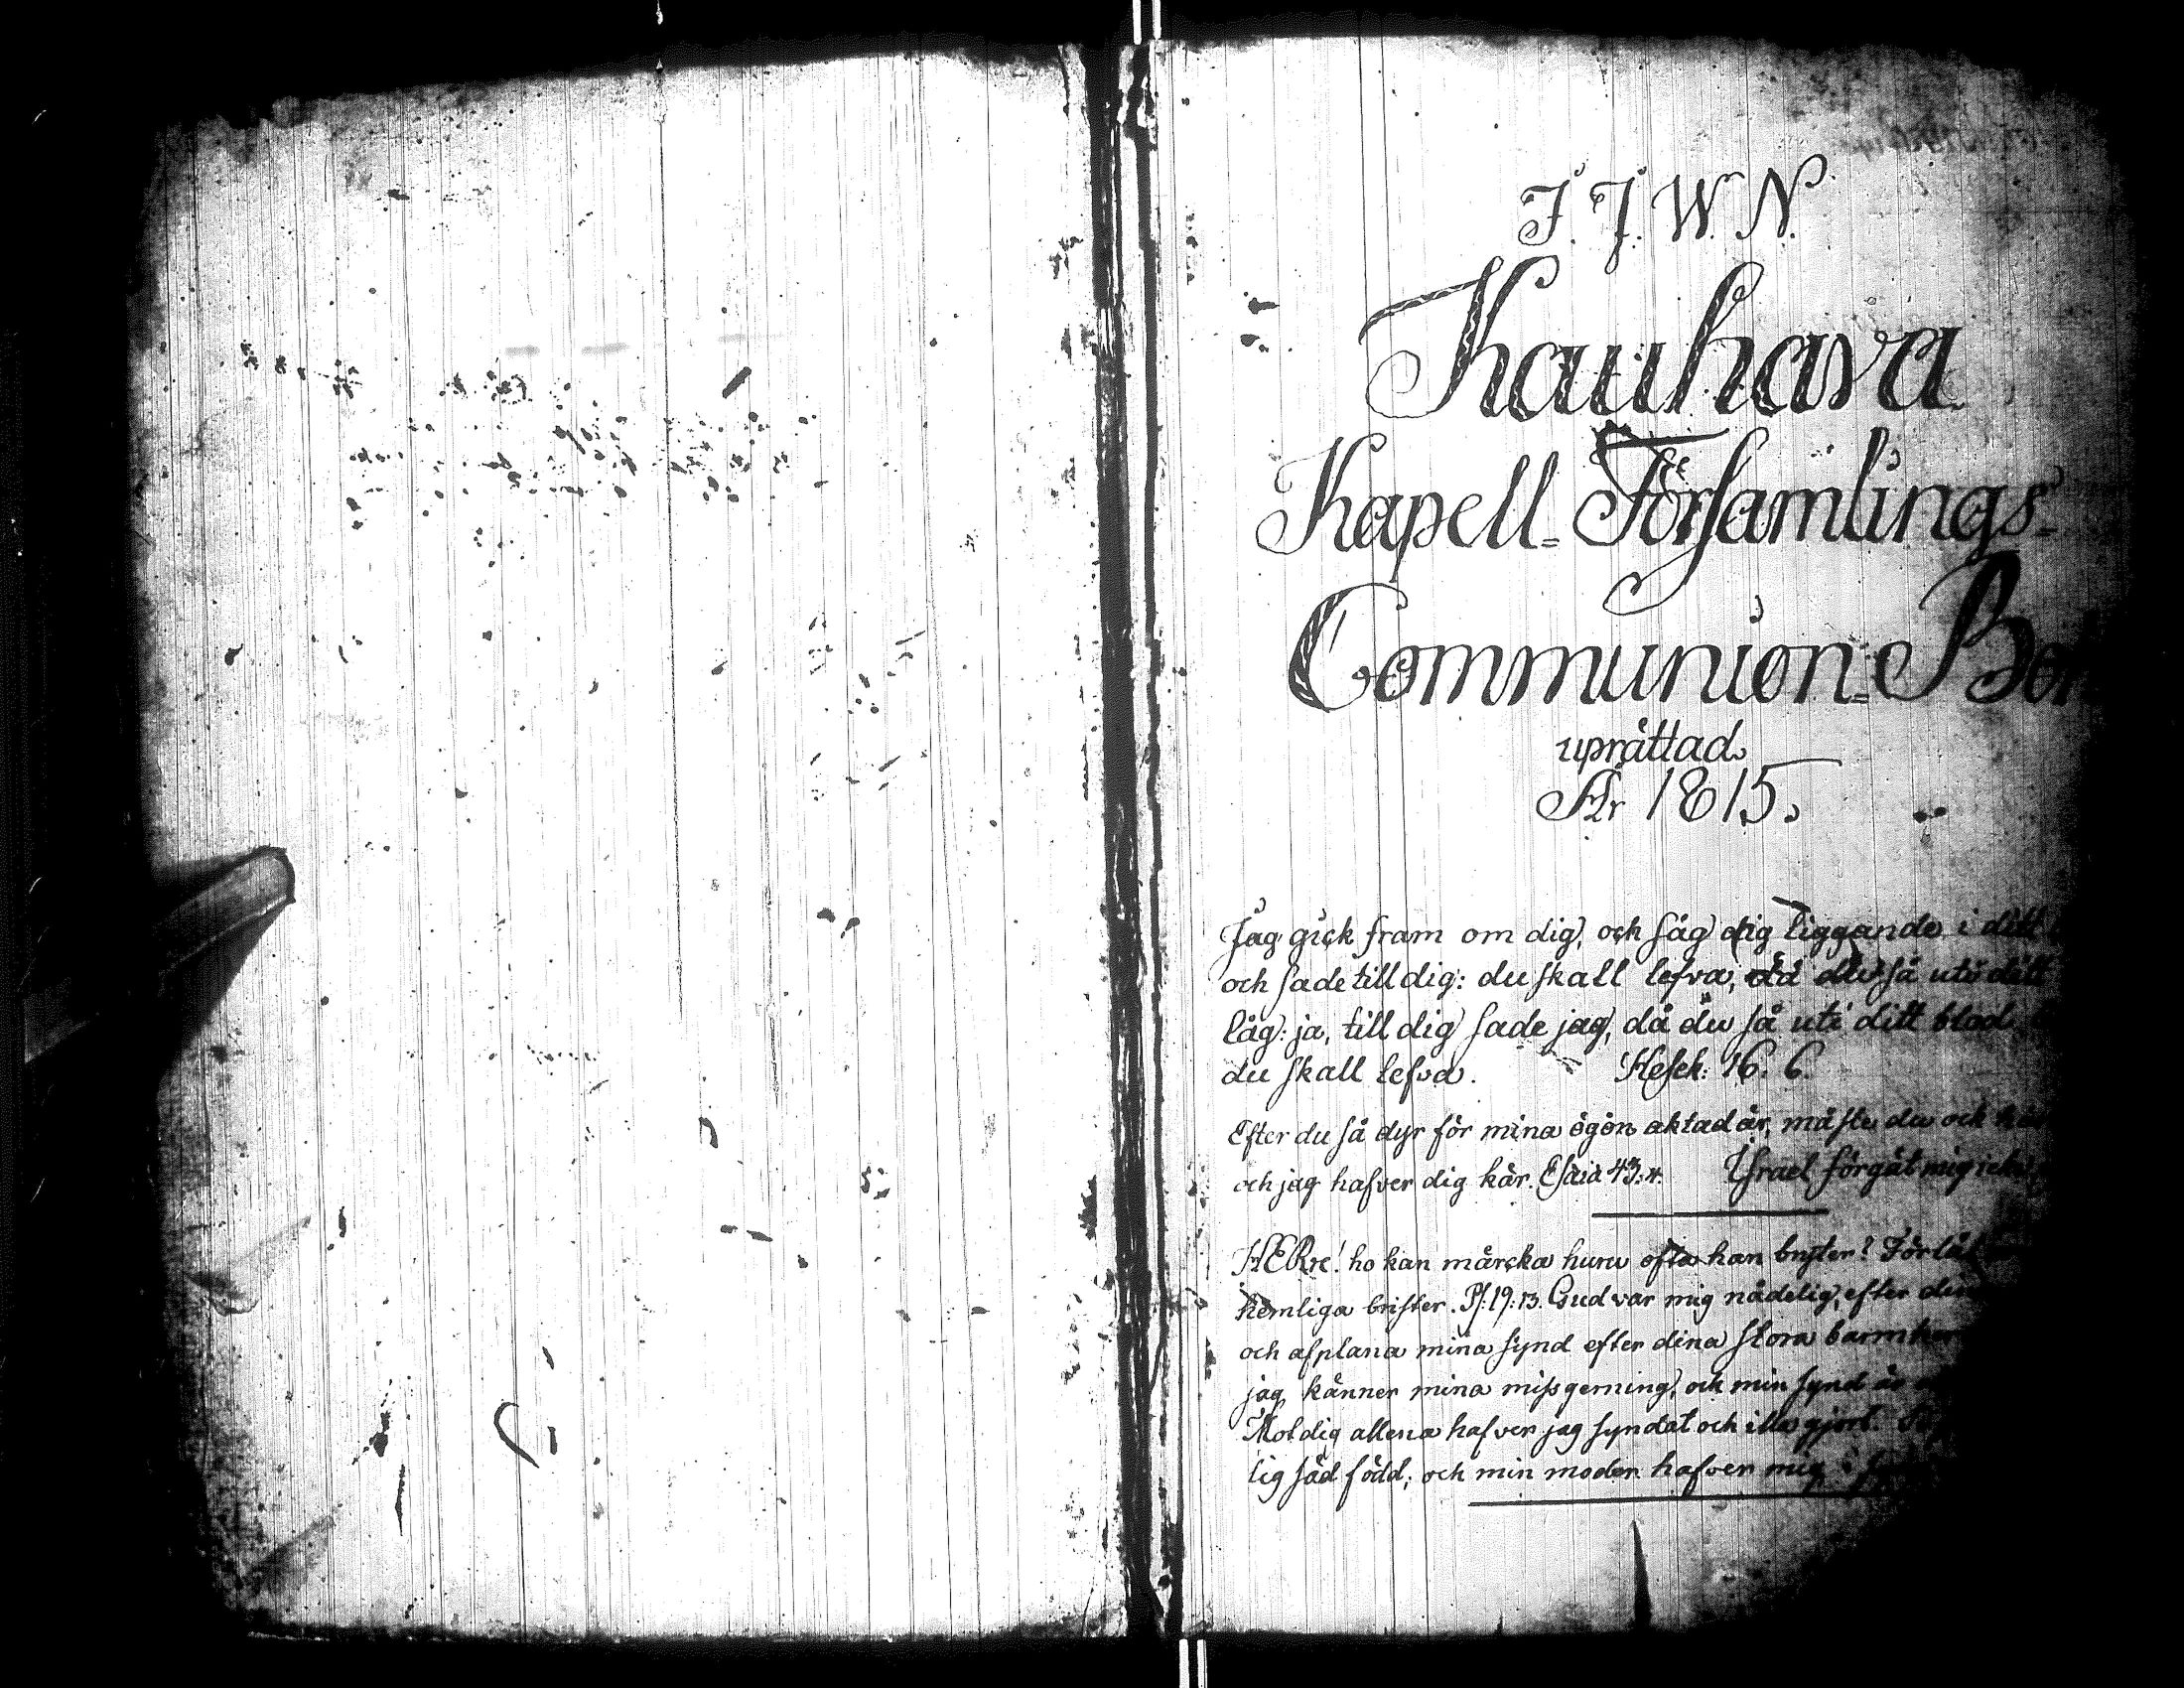 J. J. W. N.
Kauhava
Kapell-Församlings-
Communion-Bo
uprättad
År 1815.
Jag gick fram om dig, och såg dig liggande i ditt
och sade till dig: du skall lefva, då du så uti ditt
låg: ja, till dig sade jag, då du så uti ditt blod
du skall lefva. Hesek: 16. 6.
Efter du så dyr för mina ögon aktad är, måste du ock
och jag hafver dig kär. Esaia 43: 4. Israel förgät mig icke
HERre! ho kan märcka huru ofta han bryter? Förlåt
hemliga brister. Ps: 19: 13. Gud var mig nådelig, efter din
och afplana mina synd efter dina stora
jag känner mina missgerning, och min synd är
Mot dig allena hafver jag syndat och illa gjort.
lig säd född; och min moder hafver mig i